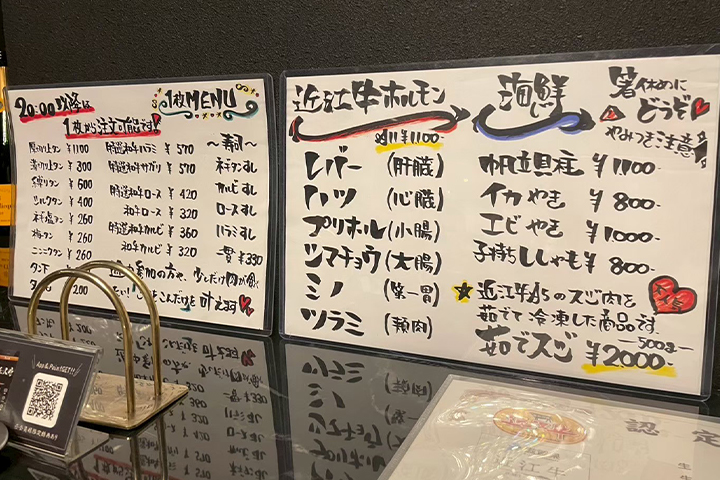 20:00以降は
1枚MENU
1枚から注文可能です!
厚切り上タン ¥1100
薄切り上タン ¥800
芯タン ¥600
ミルクタン ¥400
ネギ塩タン ¥260
梅タン ¥260
ニンニクタン ¥260
タン下
タン ¥200
特選和牛ハラミ ¥570
特選和牛サガリ ¥570
特選和牛ロース ¥420
和牛ロース ¥320
特選和牛カルビ ¥360
和牛カルビ ¥320
〜寿司〜
ネギタンすし
カルビすし
ロースすし
ハラミすし
一貫 ¥330
近江牛ホルモン
¥1100-
レバー (肝臓)
ハツ (心臓)
プリホル (小腸)
シマチョウ (大腸)
ミノ (第一胃)
ツラミ (頬肉)
海鮮
箸休めに
どうぞ
やみつき注意
帆立貝柱 ¥1100-
イカやき ¥800-
エビやき ¥1000-
子持ちししゃも ¥800-
近江牛A5のスジ肉を
茹でて冷凍した商品です。
―500g―
茹でスジ ¥2000-
認定
近江牛